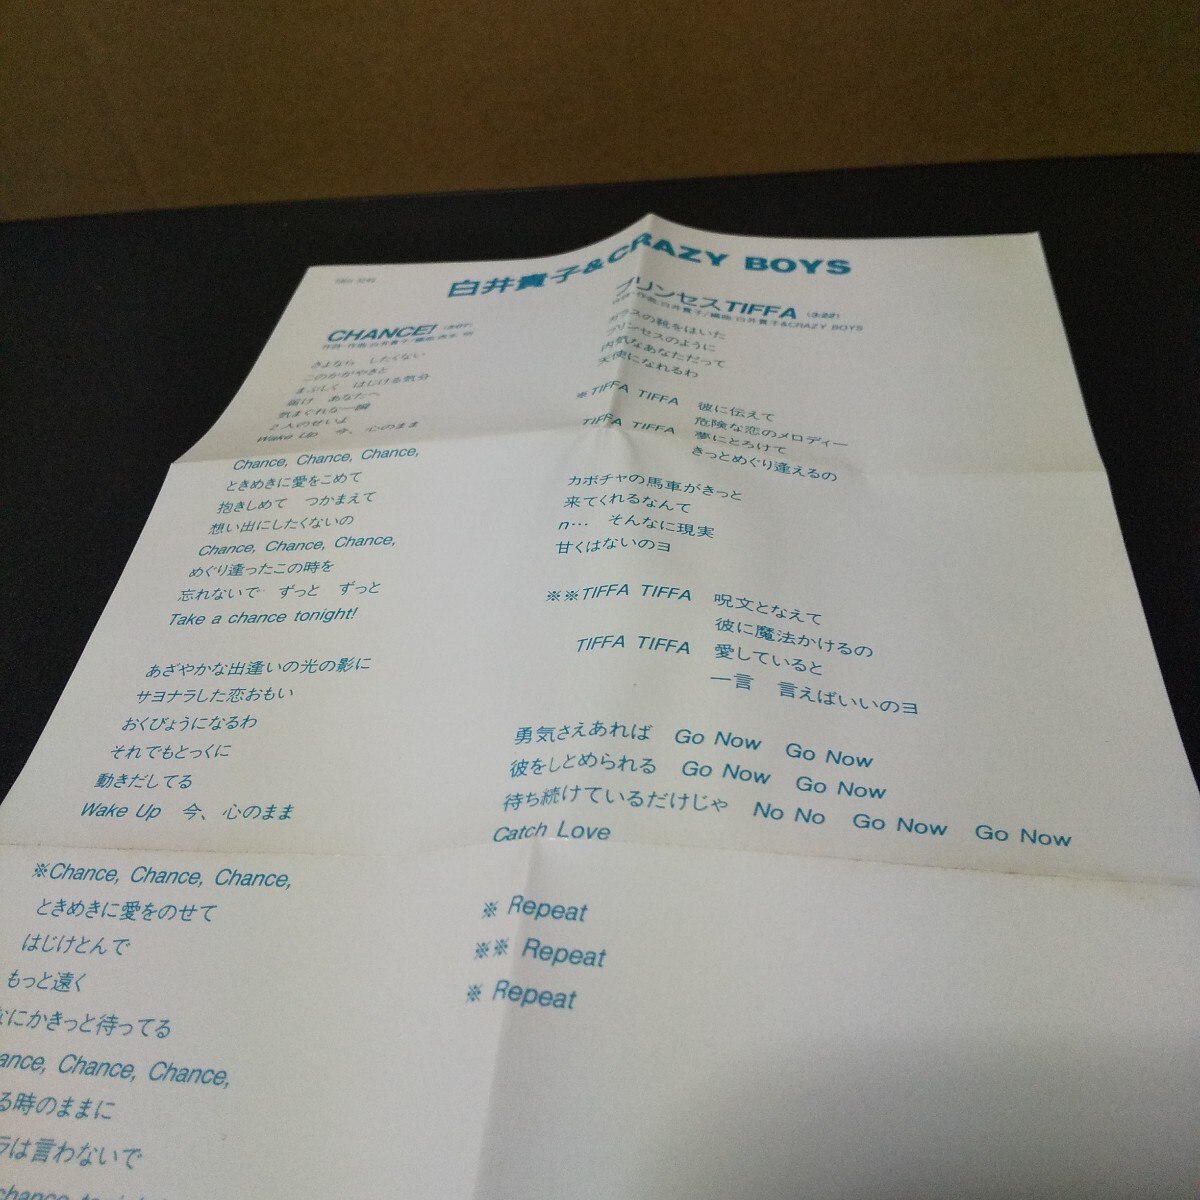 白井貴子&CRAZY BOYS
CHANCE! (3:07)
作詩・作曲:白井貴子/編曲:
さよなら したくない
このかがやきと
まぶしく はじける気分
届け あなたへ
気まぐれな一瞬
2人のせいよ
Wake Up 今、心のまま
Chance, Chance, Chance,
ときめきに愛をこめて
抱きしめて つかまえて
想い出にしたくないの
Chance, Chance, Chance,
めぐり逢ったこの時を
忘れないで ずっと ずっと
Take a chance tonight!
あざやかな出逢いの光の影に
サヨナラした恋おもい
おくびょうになるわ
それでもとっくに
動きだしてる
Wake Up 今、心のまま
※Chance, Chance, Chance,
ときめきに愛をのせて
はじけとんで
もっと遠く
なにかきっと待ってる
ance, Chance, Chance,
る時のままに
ラは言わないで
chance
プリンセスTIFFA (3:22)
作詩・作曲:白井貴子/編曲:白井貴子&CRAZY BOYS
ガラスの靴をはいた
プリンセスのように
内気なあなただって
天使になれるわ
※TIFFA TIFFA 彼に伝えて
危険な恋のメロディー
TIFFA TIFFA 夢にとろけて
きっとめぐり逢えるの
カボチャの馬車がきっと
来てくれるなんて
n… そんなに現実
甘くはないのヨ
※※TIFFA TIFFA 呪文となえて
彼に魔法かけるの
TIFFA TIFFA 愛していると
一言 言えばいいのヨ
勇気さえあれば Go Now Go Now
彼をしとめられる Go Now Go Now
待ち続けているだけじゃ No No Go Now Go Now
Catch Love
※ Repeat
※※ Repeat
※ Repeat